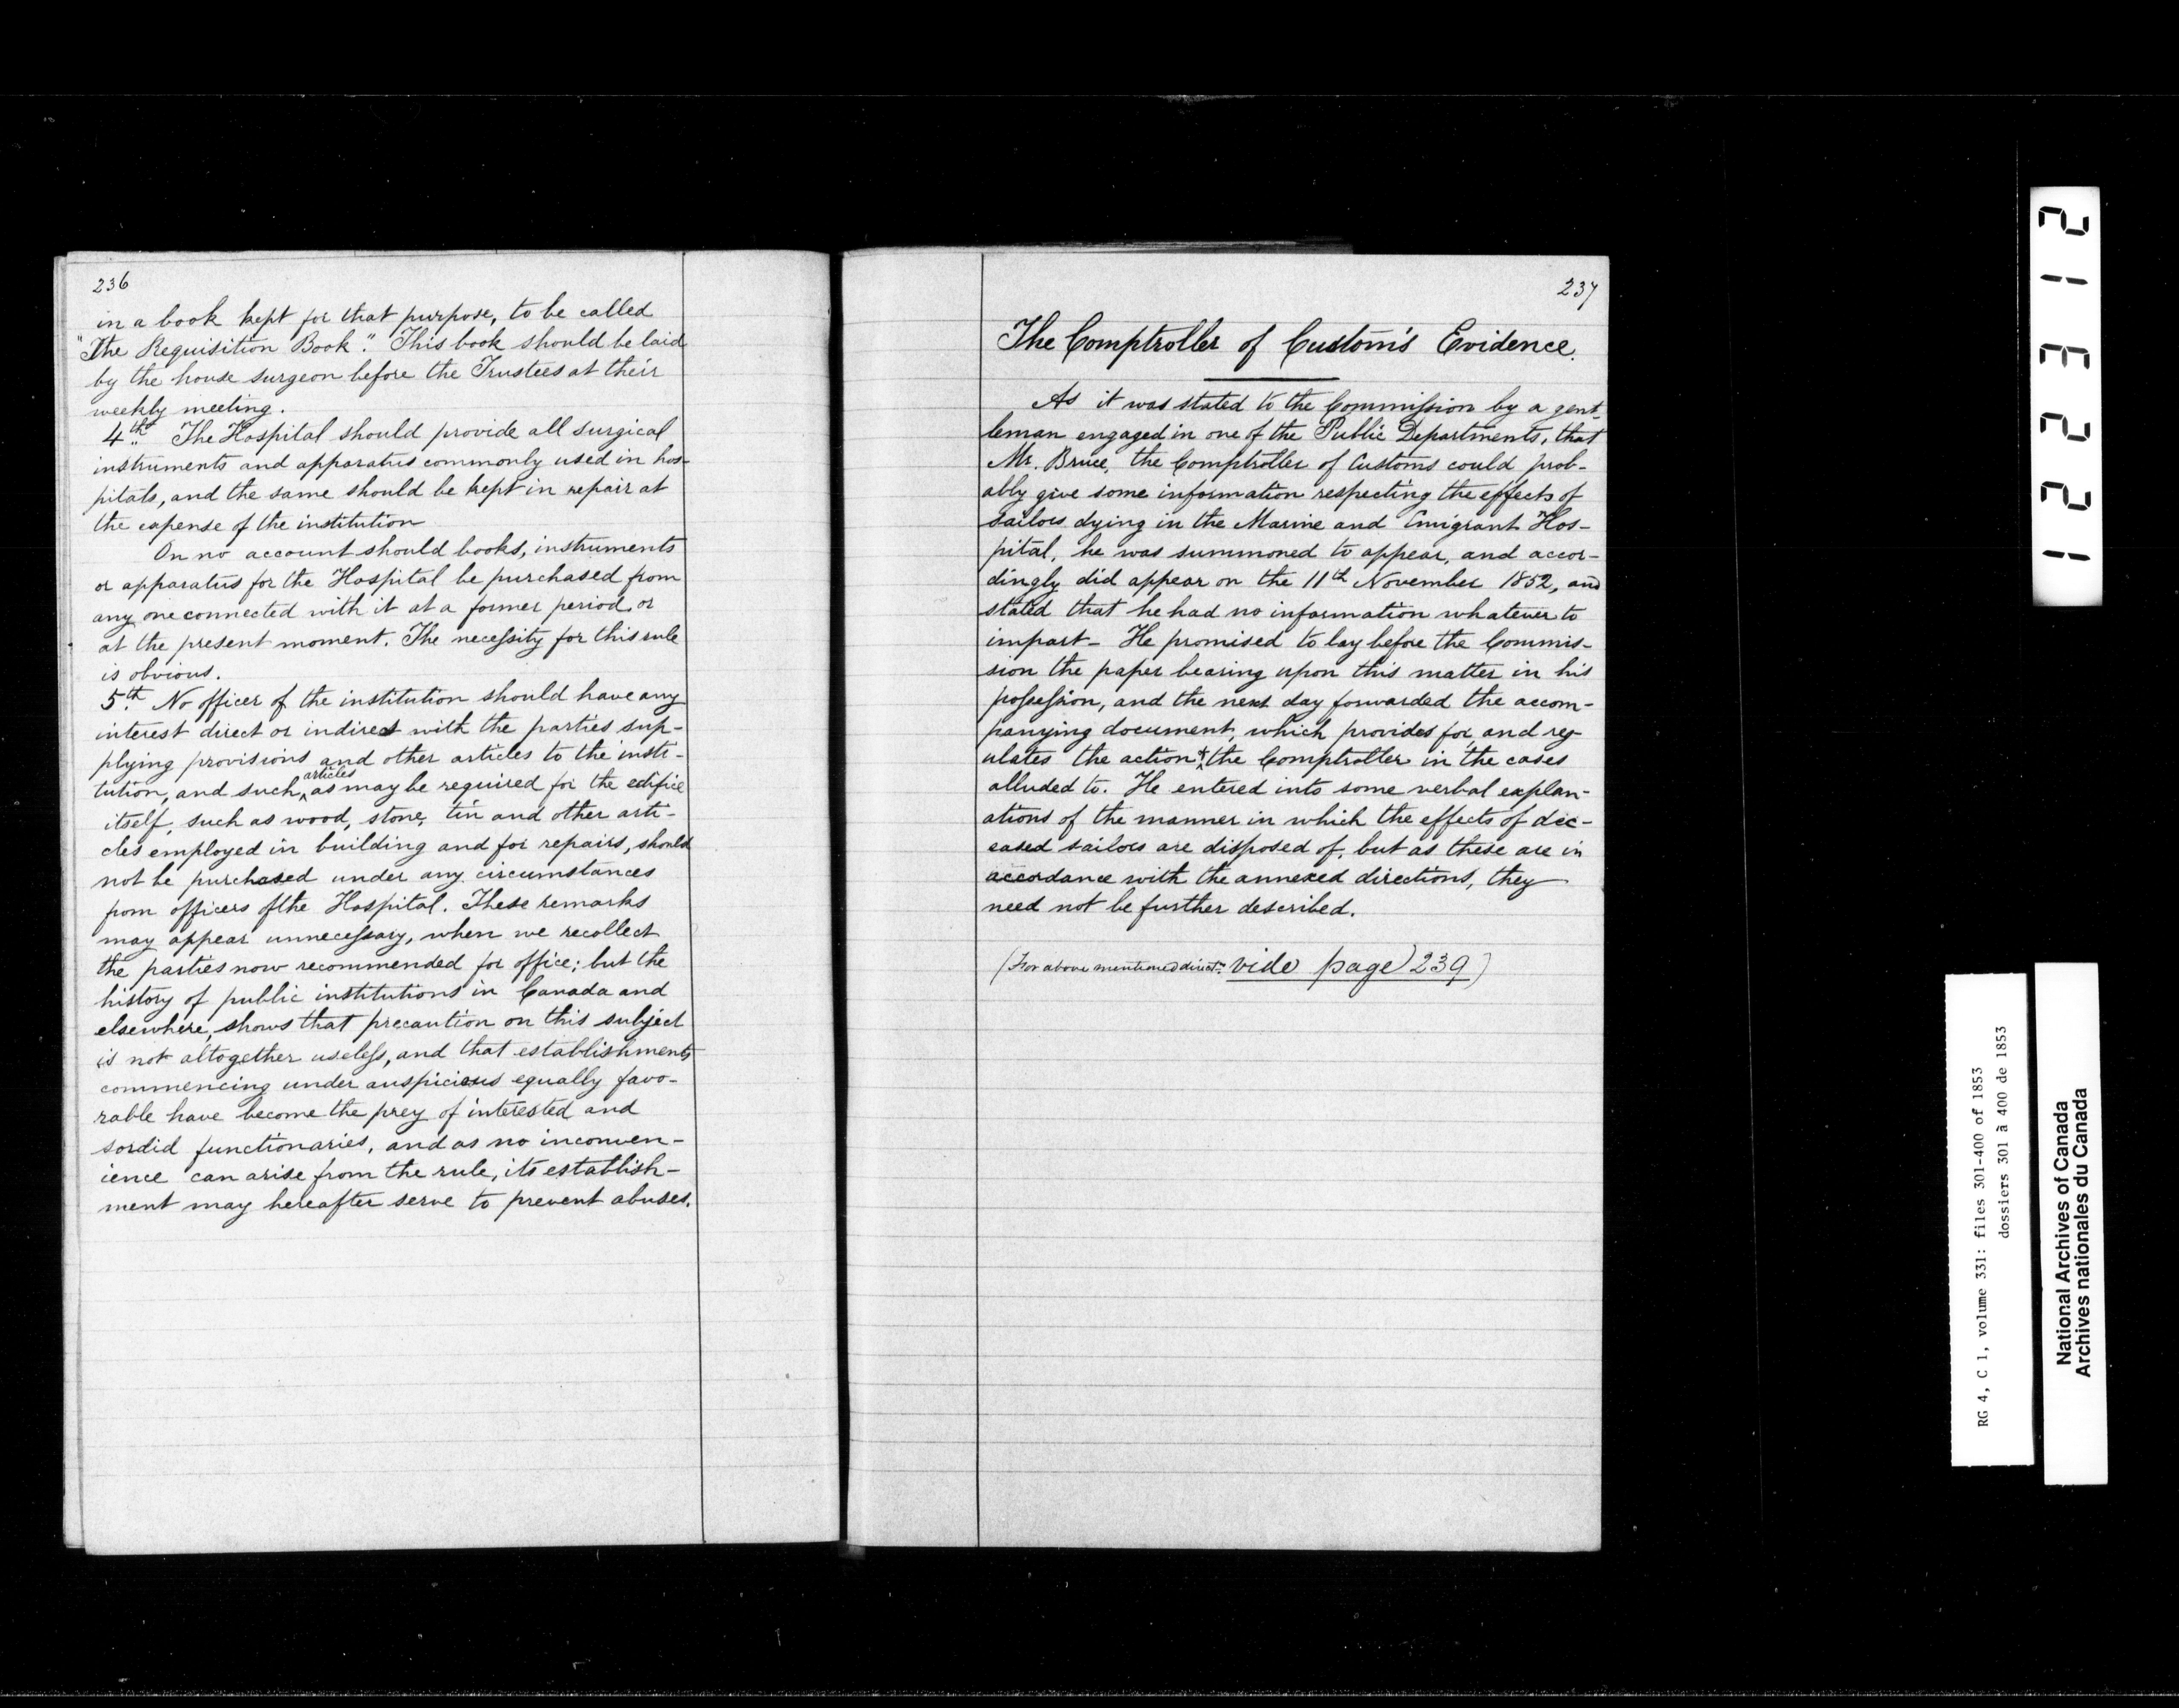 236
in a book kept for that purpose, to be called
"The Requisition Book". This book should be laid
by the house surgeon before the Trustees at their
weekly meeting.
4th The Hospital should provide all surgical
instruments and apparatus commonly used in hos-
pitals, and the same should be kept in repair at
the expense of the institution
On no account should books, instruments
or apparatus for the Hospital be purchased from
any one connected with it at a former period, or
at the present moment. The necessity for this rule
is obvious.
5th No officer of the institution should have any
interest direct or indirect with the parties sup-
plying provisions and other articles to the insti-
tution, and such articles as may be required for the edifice
itself, such as wood, stone, tin and other arti-
cles employed in building and for repairs, should
not be purchased under any circumstances
from officers of the Hospital. These remarks
may appear unnecessary, when we recollect
the parties now recommended for office; but the
history of public institutions in Canada and
elsewhere, shows that precaution on this subject
is not altogether useless, and that establishments
commencing under auspicious equally favo-
rable have become the prey of interested and
sordid functionaries, and as no inconven-
ience can arise from the rule, its establish-
ment may hereafter serve to prevent abuses.
237
The Comptroller of Custom's Evidence.
As it was stated to the Commission by a gent-
leman engaged in one of the Public Departments, that
Mr. Bruce, the Comptroller of Customs could prob-
ably give some information respecting the effects of
sailors dying in the Marine and Emigrant Hos-
pital, he was summoned to appear, and accor-
dingly did appear on the 11th November 1852, and
stated that he had no information whatever to
impart- He promised to lay before the Commis-
sion the paper bearing upon this matter in his
possession, and the next day forwarded the accom-
panying document, which provides for, and reg-
ulates the action of the Comptroller in the cases
alluded to. He entered into some verbal explan-
ations of the manner in which the effects of dec-
eased sailors are disposed of, but as these are in
accordance with the annexed directions, they
need not be further described.
(For above mentioned directns vide page 239)
12312
RG 4, C 1, volume 331: files 301-400 of 1853
dossiers 301 à 400 de 1853
National Archives of Canada
Archives nationales du Canada